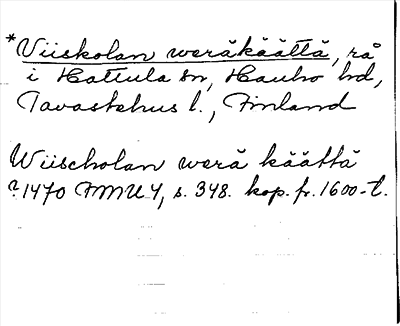 *Viiskolan weräkäättä, rå
i Hattula sn, Hauho hd,
Tavastehus l., Finland
Wiischolan werä käättä
?1470 FMU 4, s. 348. kop. fr. 1600-t.